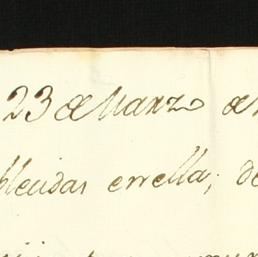 23 de Marzo de
blecidas en ella; de